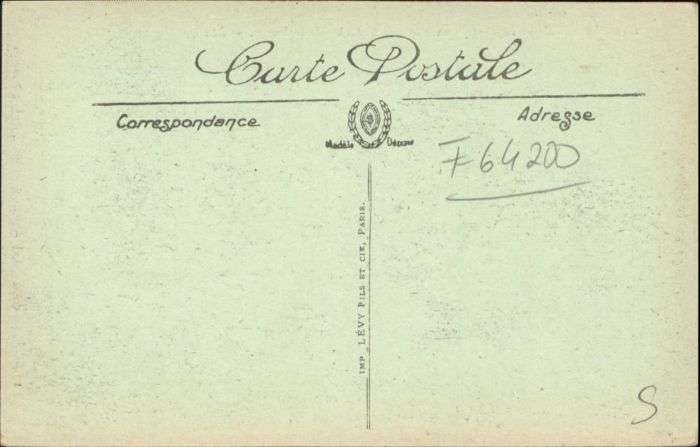 Carte Postale
Correspondance
Adresse
Modèle Déposé
F 64200
IMP. LÉVY FILS ET CIE, PARIS.
S